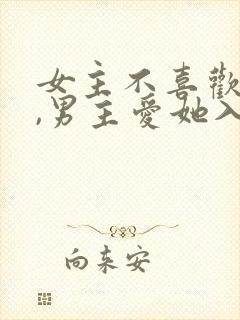 女主不喜歡
,男主愛她入
向來安